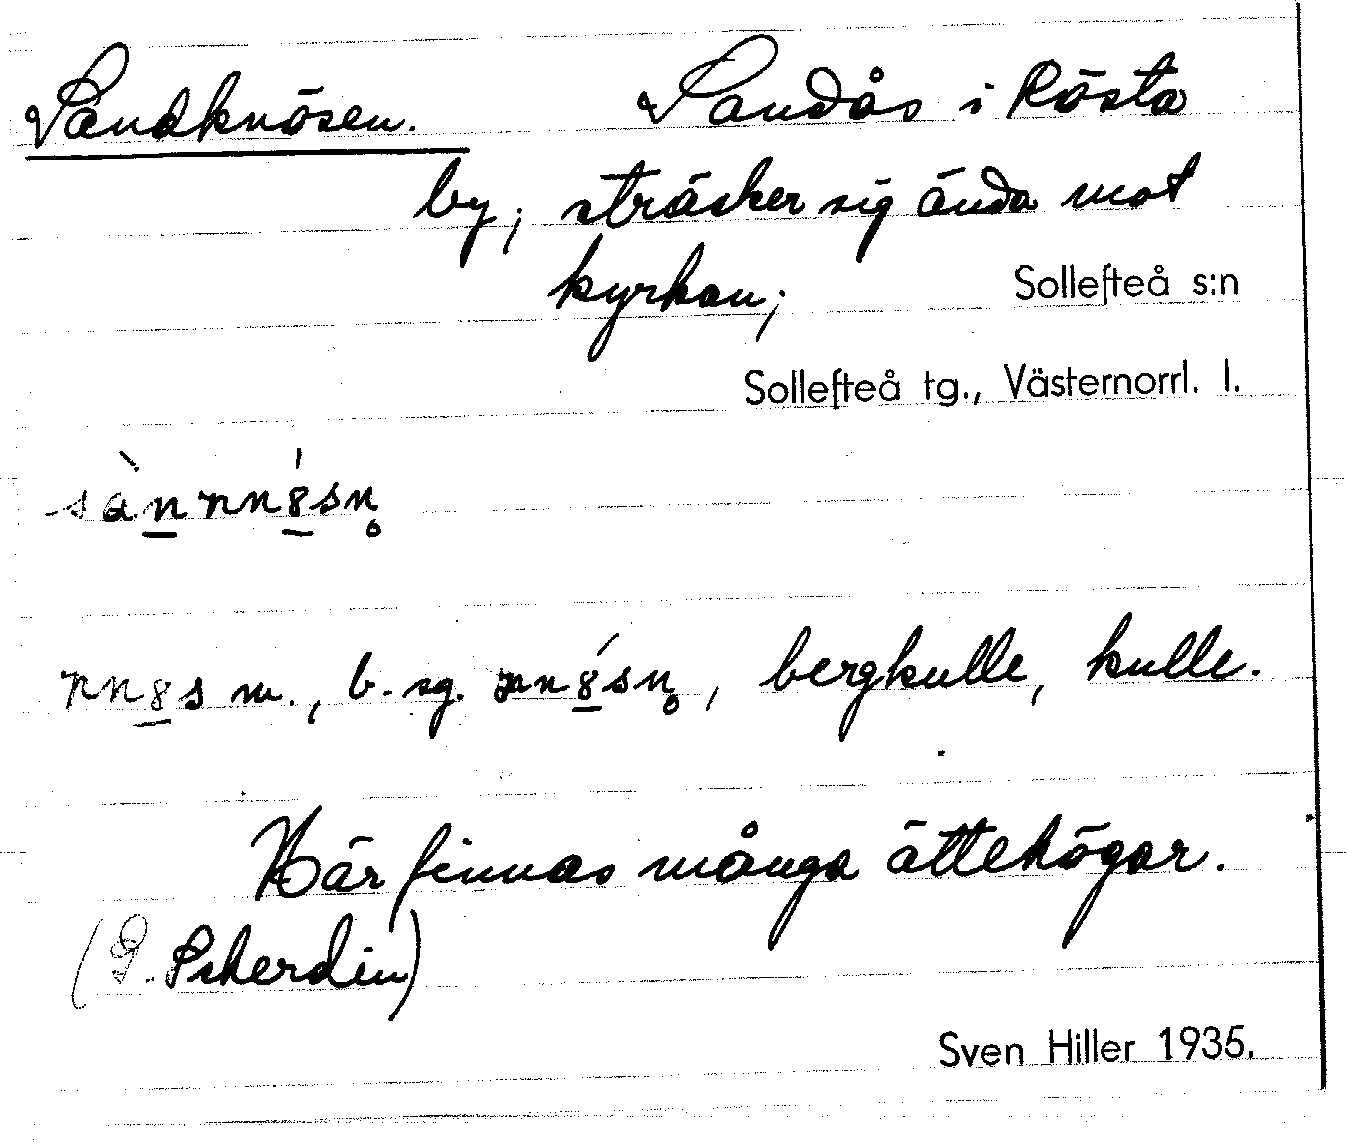 Sandknösen. Sandås i Rösta
by; sträcker sig ända mot
kyrkan; Sollefteå s:n
Sollefteå tg., Västernorrl. l.
m., b. sg. , bergkulle, kulle.
Här finnas många ättehögar.
Scherdin)
Sven Hiller 1935.